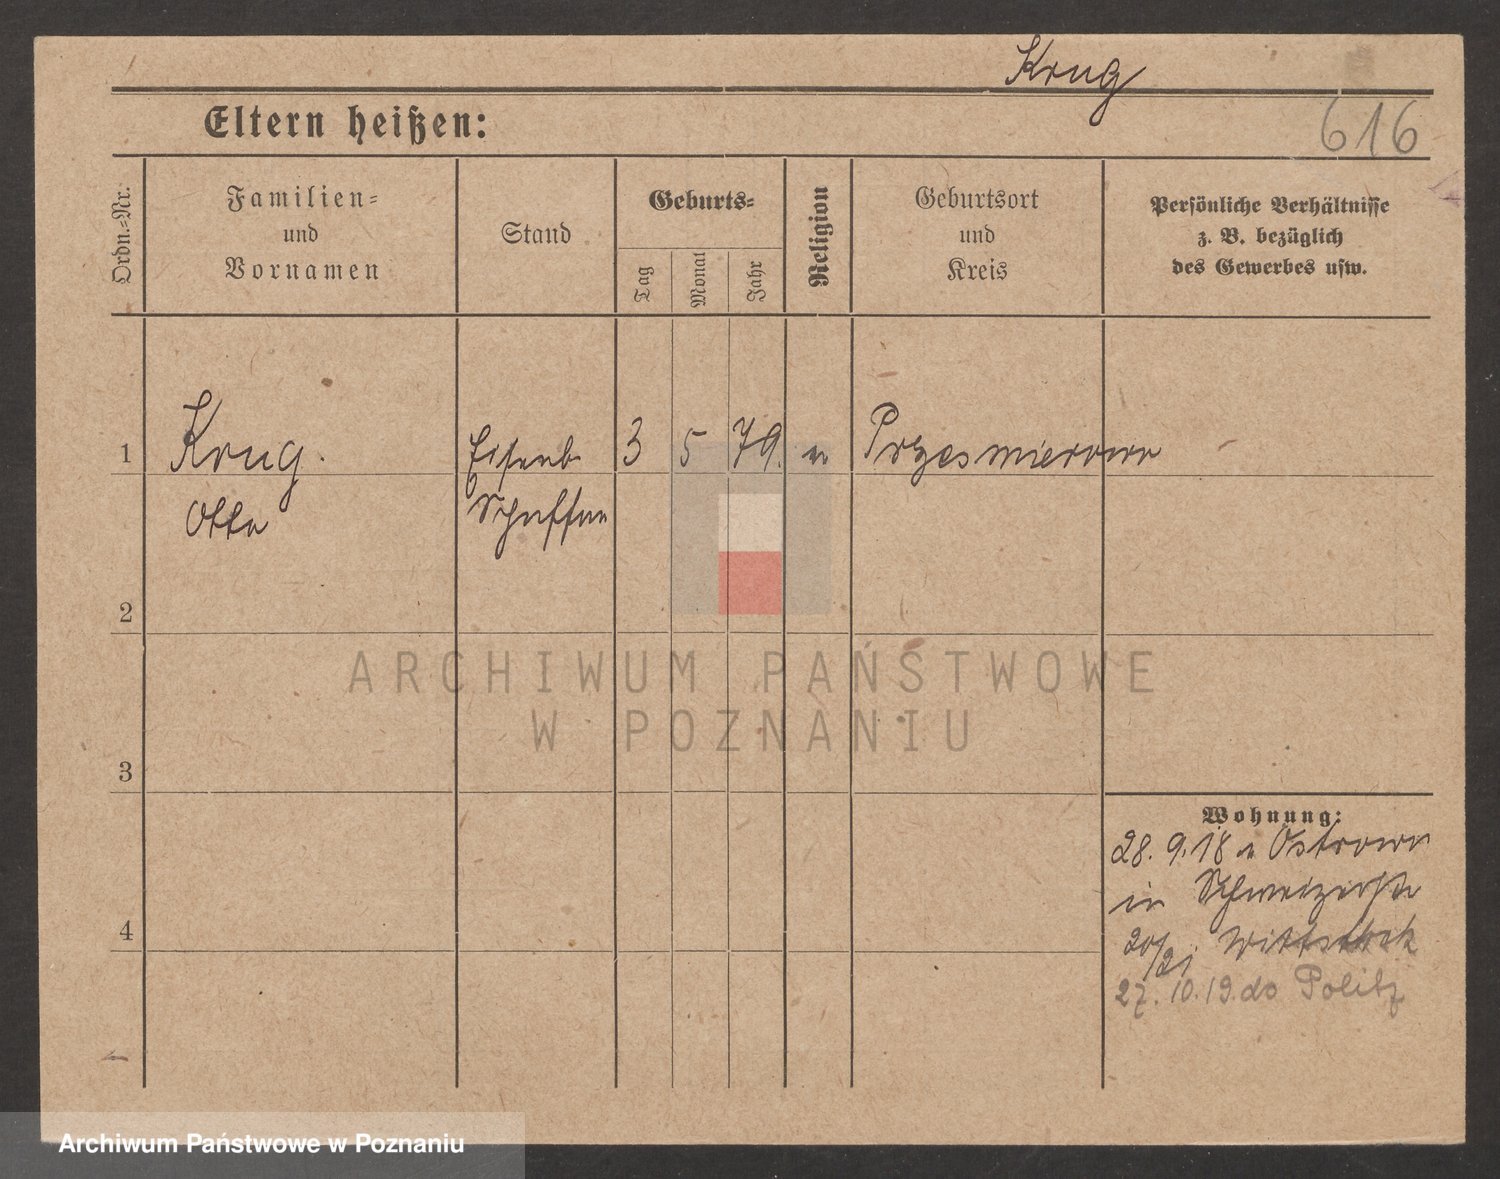 Krug
616
Eltern heißen:
Ordn.=Nr.
Familien=
und
Vornamen
Stand
Geburts=
Tag
Monat
Jahr
Religion
Geburtsort
und
Kreis
Persönliche Verhältnisse
z. B. bezüglich
des Gewerbes usw.
1
Krug.
Otto
Eisenb
Schaffner
3
5
79.
Przesmierowo
2
3
4
Wohnung:
28. 9. 18 Ostrowo
in Schweizerstr
20/21 Wittstock
27. 10. 19. do Politz
ARCHIWUM PAŃSTWOWE
W POZNANIU
Archiwum Państwowe w Poznaniu